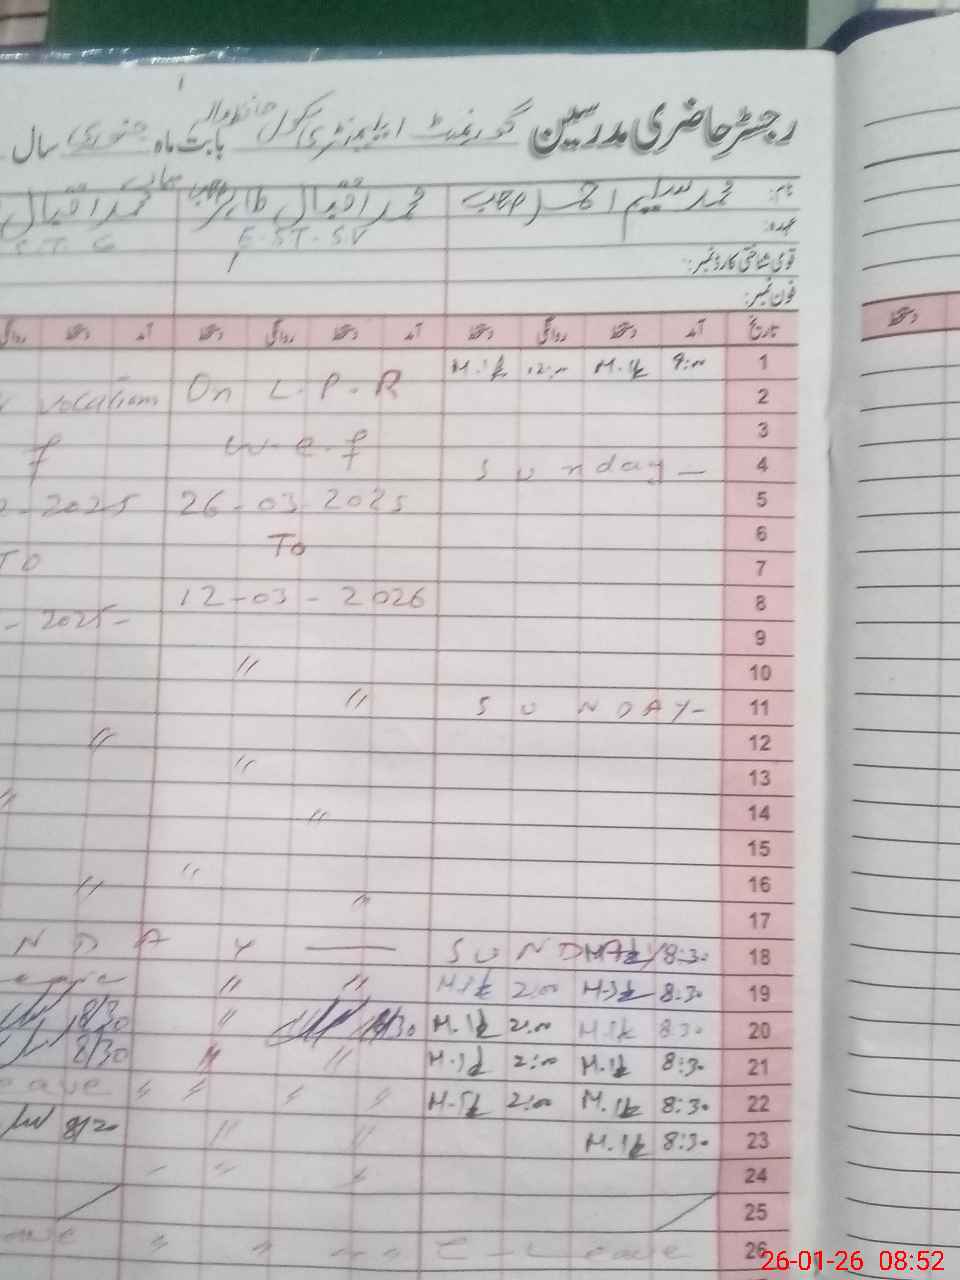 رجسٹر حاضری مدرسین گورنمنٹ ایلیمنٹری سکول بابت ماہ جنوری سال
نام: محمد سلیم احمد صاحب محمد اقبال طاہر صاحب محمد اقبال
عہدہ: E.ST.SV S.T.G
قومی شناختی کارڈ نمبر:
فون نمبر:
تاریخ آمد دستخط روانگی دستخط آمد دستخط روانگی دستخط آمد دستخط روانگی دستخط
1 9:00 12:00
2 On L.P.R vocations
3 w.e.f
4 Sunday - f
5 26-03-2025 - 2025
6 To
7 TO
8 12-03-2026 - 2025 -
9
10 "
11 SUNDAY- "
12 "
13 "
14 " "
15
16 " "
17 "
18 8:30 SUNDAY N D A Y —
19 8:30 2:00 " "
20 8:30 2:00 8/30 " 8/30
21 8:30 2:00 " " 8/30
22 8:30 2:00 " " " " eave
23 8:30 " " 8/20
24 " "
25
26 C - Leave " " " "
26-01-26 08:52